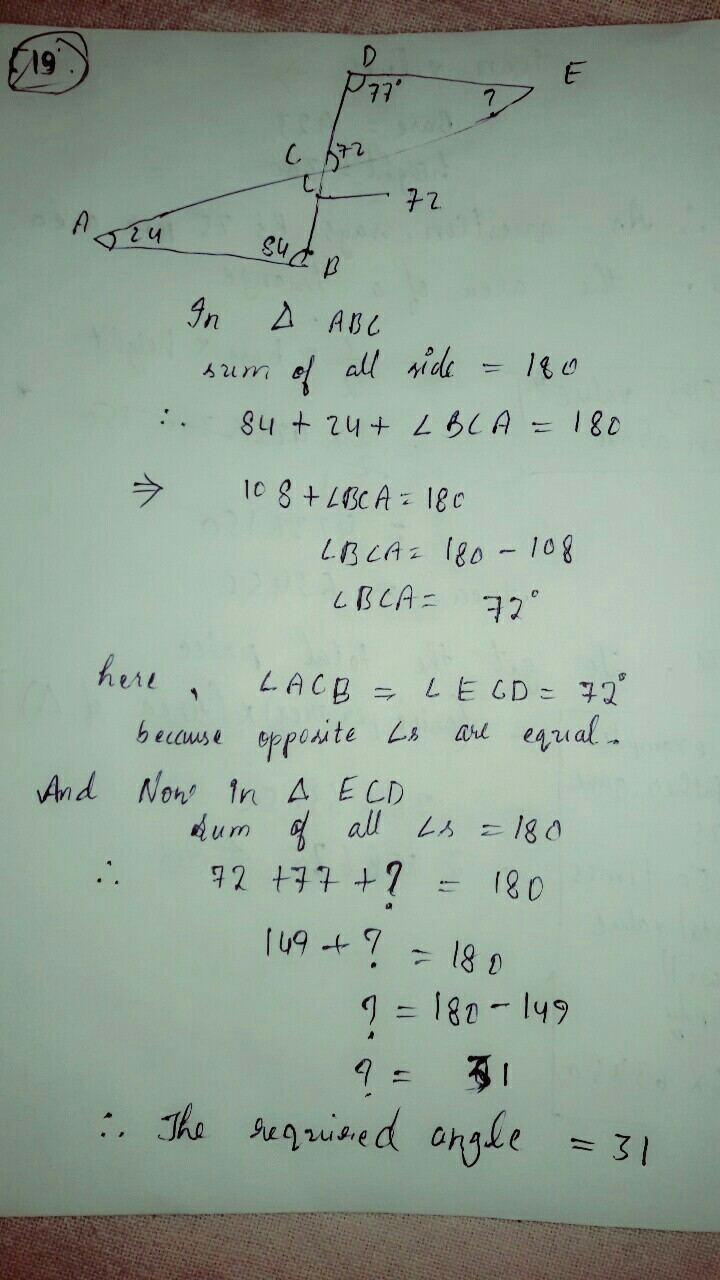 19.
D
E
77°
?
C
72
L
72
A
24
84
B
In Δ ABC
sum of all side = 180
∴ 84 + 24 + ∠BCA = 180
⇒ 108 + ∠BCA = 180
∠BCA = 180 - 108
∠BCA = 72°
here, ∠ACB = ∠ECD = 72°
because opposite ∠s are equal.
And Now in Δ ECD
sum of all ∠s = 180
∴ 72 + 77 + ? = 180
149 + ? = 180
? = 180 - 149
? = 31
∴ The required angle = 31